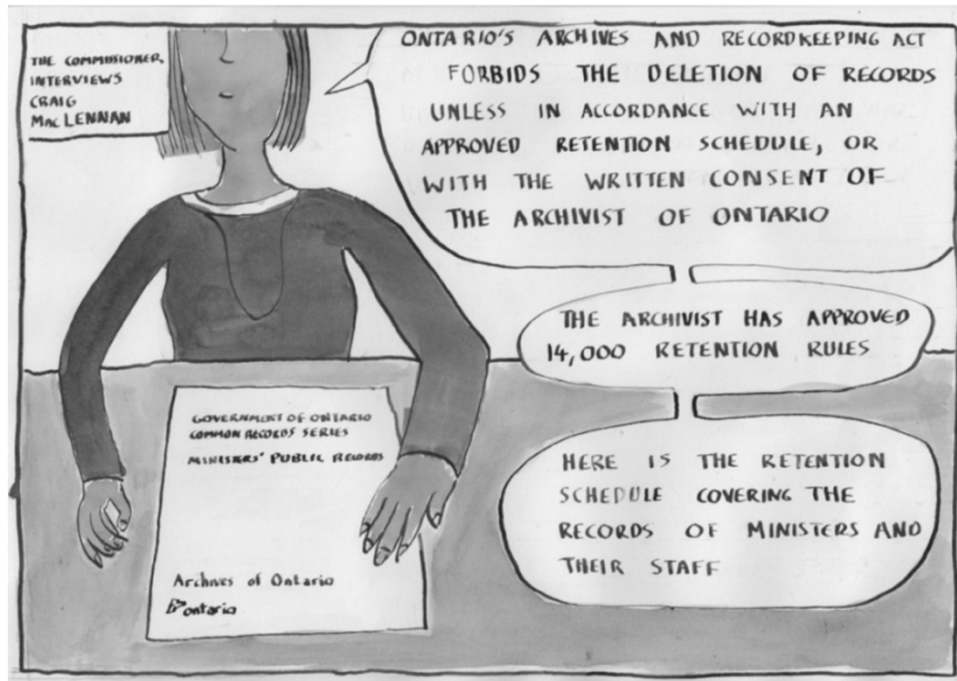 THE COMMISSIONER,
INTERVIEWS
CRAIG
MACLENNAN
ONTARIO'S ARCHIVES AND RECORDKEEPING ACT
FORBIDS THE DELETION OF RECORDS
UNLESS IN ACCORDANCE WITH AN
APPROVED RETENTION SCHEDULE, OR
WITH THE WRITTEN CONSENT OF
THE ARCHIVIST OF ONTARIO
THE ARCHIVIST HAS APPROVED
14,000 RETENTION RULES
HERE IS THE RETENTION
SCHEDULE COVERING THE
RECORDS OF MINISTERS AND
THEIR STAFF
GOVERNMENT OF ONTARIO
COMMON RECORDS SERIES
MINISTERS' PUBLIC RECORDS
Archives of Ontario
Ontario